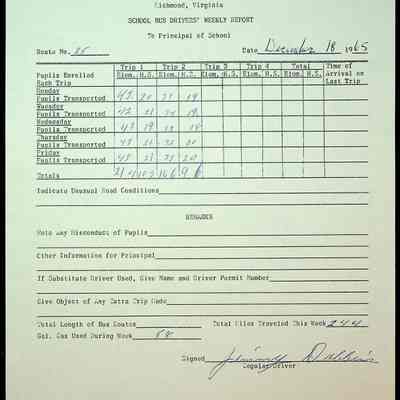 Richmond, Virginia
SCHOOL BUS DRIVERS' WEEKLY REPORT
To Principal of School
Route No. Date December 18 1965
Trip 1 Trip 2 Trip 3 Trip 4 Total Time of
Pupils Enrolled Elem. H.S. Elem. H.S. Elem. H.S. Elem. H.S. Elem. H.S. Arrival on
Each Trip Last Trip
Monday
Pupils Transported 19
Tuesday
Pupils Transported 42 19
Wednesday
Pupils Transported 43 19
Thursday
Pupils Transported 43
Friday
Pupils Transported 43 20
Totals
Indicate Unusual Road Conditions
REMARKS
Note Any Misconduct of Pupils
Other Information for Principal
If Substitute Driver Used, Give Name and Driver Permit Number
Give Object of Any Extra Trip Made
Total Length of Bus Routes Total Miles Traveled This Week 244
Gal. Gas Used During Week
Signed Jimmy
Regular Driver